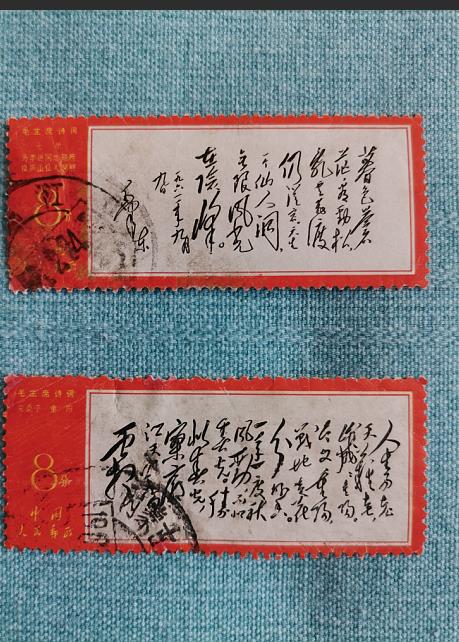 毛主席诗词
七绝
为李进同志题所
摄庐山仙人洞照
8分
暮色苍
茫看劲松
乱云飞渡
仍从容天生
一个仙人洞
无限风光
在险峰。
一九六一年九月
九日
毛泽东
毛主席诗词
采桑子 重阳
8分
中国
人民邮政
人生易老
天难老岁
岁重阳。
今又重阳
战地黄花
分外香。
一年一度秋
风劲不似
春光胜
似春光
寥廓
江天万里
霜